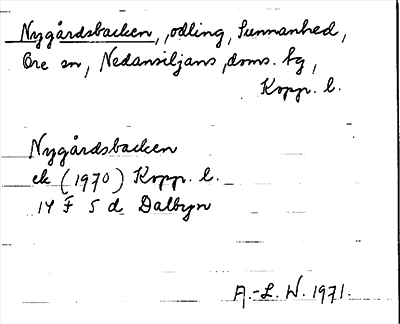 Nygårdsbacken, odling, Sunnanhed,
Ore sn, Nedansiljans doms. tg,
Kopp. l.
Nygårdsbacken
ek (1970) Kopp. l.
14 F 5 d Dalbyn
A.-L. W. 1971.